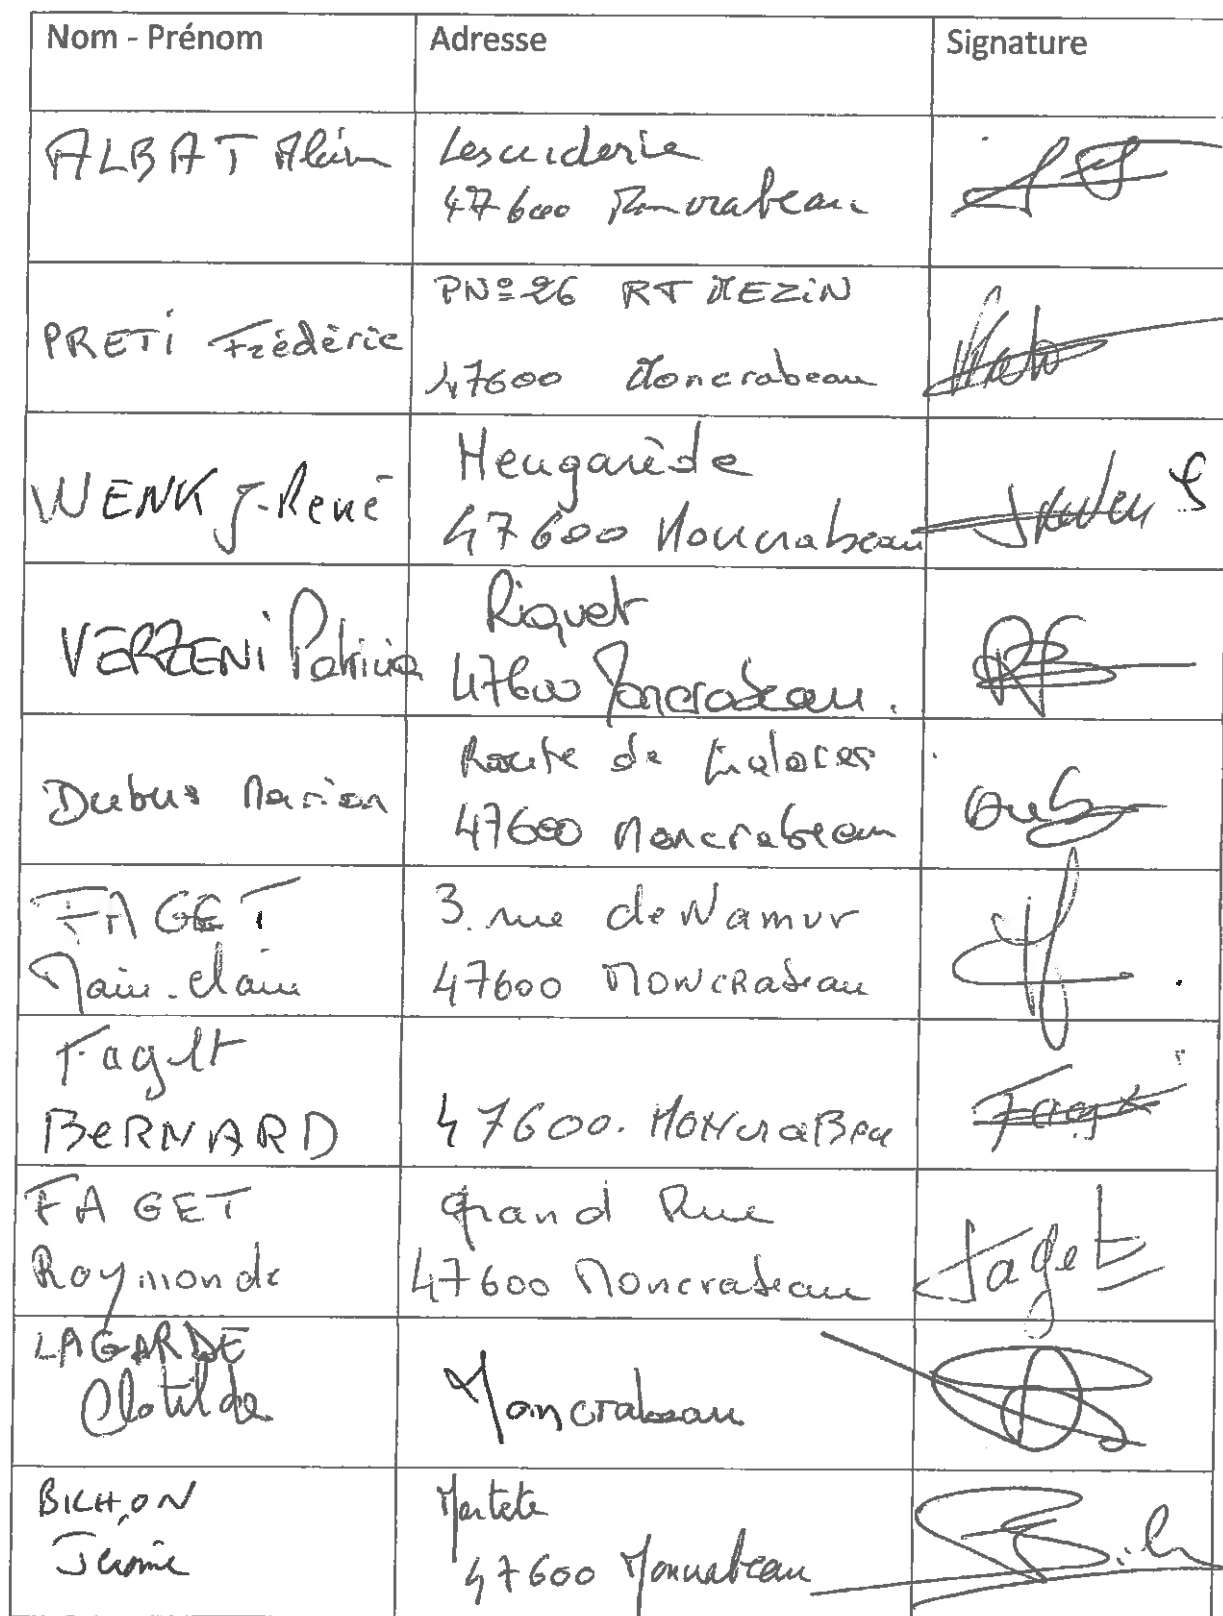 Nom - Prénom
Adresse
Signature
ALBAT Alain
Lescuderie
47600 Moncrabeau
PRETI Frédéric
PN° 26 RT MEZIN
47600 Moncrabeau
WENK J-René
Heugarède
47600 Moncrabeau
VERZENI Patricia
Riquet
47600 Moncrabeau.
Dubus Marion
Route de
47600 Moncrabeau
Dub
FAGET
Marie-Claire
3. rue de Namur
47600 MONCRAbeau
Faget
BERNARD
47600. MONCraBeau
Faget
FAGET
Raymonde
Grand Rue
47600 Moncrabeau
Faget
LAGARDE
Clotilde
Moncrabeau
BICHON
Jérôme
47600 Moncrabeau